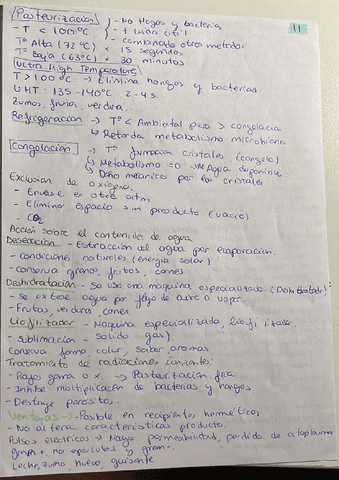 Pasteurización - No Hogos y bacteria
11
- T < 100°C. - + vida útil
- combinado otro metodos
Tª Alta (72°C) x 15 segundos
Tª Baja (63°C) x 30 minutos
Ultra High Temperature
T > 100°C → Elimina hongos y bacterias
UHT: 135-140°C 2-4s.
Zumos, frutas, verdura.
Refrigeracion → Tª < Ambiental pero > congelacion
↳ Retarda metabolismo microbiano
Congelación → Tª formacion cristales (congela)
↳ Metabolismo = 0 Agua disponible
↳ Daño mecanico por los cristales
Exclusion de oxigeno
- Envase en otra atm
- Eliminar espacio producto (vacio)
- CO2
Acción sobre el contenido de agua
Desecación - Extracción el agua por evaporacion.
- condiciones naturales (energia solar)
- conserva granos, frutos, carnes
Deshidratación - Se usa una maquina especializada (Deshidratador)
- Se extrae agua por flujo de aire o vapor.
- Frutas, verduras, carnes
Liofilizador - Maquina especializada, liofilizador.
- Sublimacion - solido - gas)
Conserva forma, color, sabor aromas
Tratamiento de radiaciones ionizantes:
- Rayos gama o x → Pasteurización fria
- Inhibe multiplicación de bacterias y hongos
- Destruye parasitos.
Ventajas → Posible en recipientes hermeticos
- No altera caracteristicas producto.
Pulsos electricos → Mayor permeabilidad, perdida de citoplasma
gram + no esporulados y gram -.
Leche, zumo, huevo, guisante